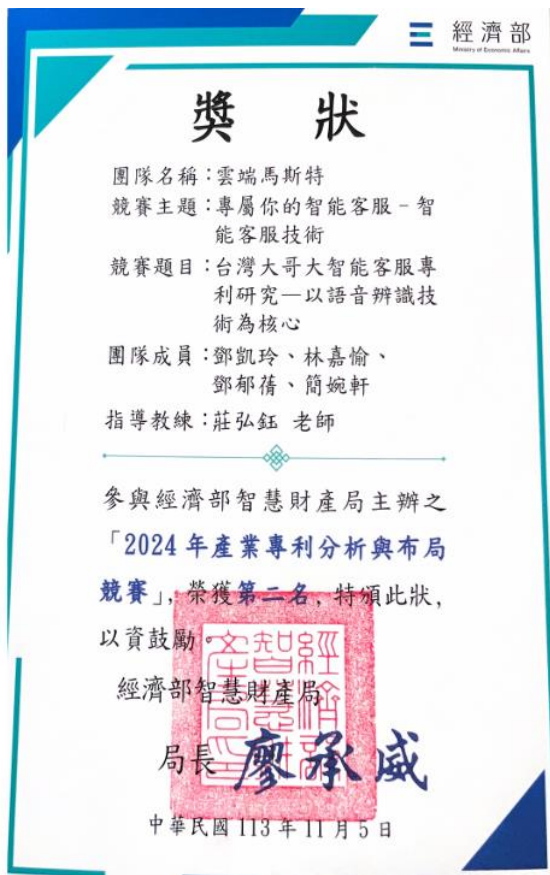 經濟部
Ministry of Economic Affairs
獎 狀
團隊名稱：雲端馬斯特
競賽主題：專屬你的智能客服－智
能客服技術
競賽題目：台灣大哥大智能客服專
利研究—以語音辨識技
術為核心
團隊成員：鄧凱玲、林嘉愉、
鄧郁蒨、簡婉軒
指導教練：莊弘鈺 老師
參與經濟部智慧財產局主辦之
「2024 年產業專利分析與布局
競賽」，榮獲第二名，特頒此狀，
以資鼓勵。
經濟部智慧財產局
局長 廖承威
經濟部智慧財產局印
中華民國 113 年 11 月 5 日